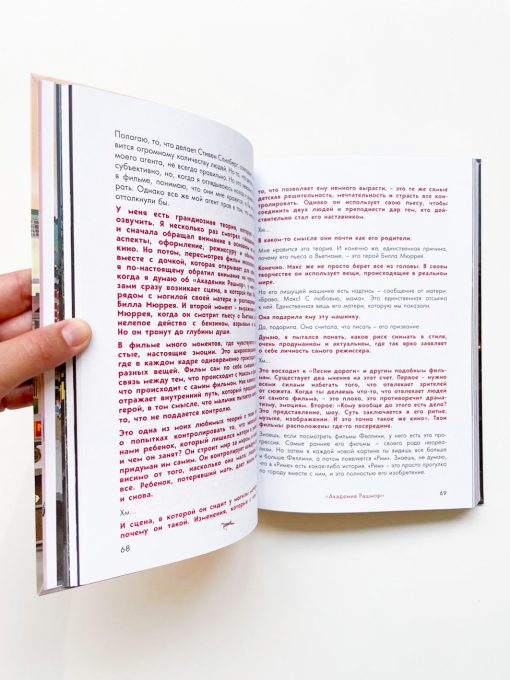 Полагаю, то, что делает Стивен Спилберг,
вится огромному количеству людей. Но то,
моего агента, не всегда правильно. Но
субъективно, но, когда я оглядываюсь назад,
в фильме, понимаю, что они мне нравятся.
рать. Однако все же мой агент прав в том, что
оттолкнули бы.
У меня есть грандиозная теория,
озвучить. Я несколько раз смотрел
и сначала обращал внимание в основном
аспекты, оформление, режиссуру и
Кино. Но потом, пересмотрев фильм
вместе с дочкой, которая открывает для
я по-настоящему обратил внимание
когда я думаю об «Академии Рашмор»,
зами сразу возникает сцена, в которой
рядом с могилой своей матери и
Билла Мюррея. И второй момент –
Мюррея, когда он смотрит пьесу о Вьетнаме
нелепое действо с бензином, взрывами
Но он тронут до глубины души.
В фильме много моментов, где чувствуются
стые, настоящие эмоции. Это
где в каждом кадре одновременно
разных вещей. Фильм сам по себе
связь между тем, что происходит с Максом
что происходит с самим фильмом. Как
отражает внутренний путь, который
герой, в том смысле, что нельзя пытаться
то, что не поддается контролю.
Это одна из моих любимых теорий
о попытках контролировать то, что
нами ребенок, который лишился матери
чем он занят? Он строит мир за миром
придуман им самим. Он контролирует
висимо от того, насколько она мала,
все. Ребенок, потерявший мать,
и снова.
Хм...
И сцена, в которой он сидит у могилы
почему он такой. Изменения, которые с
68
то, что позволяет ему немного вырасти, – это те же самые
детская решительность, мечтательность и страсть все кон-
тролировать. Однако он использует свою пьесу, чтобы
соединить двух людей и преподнести дар тем, кто дей-
ствительно стал его наставником.
Хм...
В каком-то смысле они почти как его родители.
Мне нравится эта теория. И, конечно же, единственная причина,
почему его пьеса о Вьетнаме, – это герой Билла Мюррея.
Конечно. Макс же не просто берет все из головы. В своем
творчестве он использует вещи, происходящие в реальном
мире.
На его пишущей машинке есть надпись – сообщение от матери:
«Браво, Макс! С любовью, мама». Это единственная отсылка
к ней. Единственная вещь его матери, которую мы показали.
Она подарила ему эту машинку.
Да, подарила. Она считала, что писать – его призвание.
Думаю, я пытался понять, каков риск снимать в стиле,
очень продуманном и актуальном, где так ярко заявляет
о себе личность самого режиссера.
Хм...
Это восходит к «Песни дороги» и другим подобным филь-
мам. Существует два мнения на этот счет. Первое – нужно
всеми силами избегать того, что отвлекает зрителей
от сюжета. Когда ты делаешь что-то, что отвлекает людей
от самого фильма, – это плохо, это противоречит драма-
тизму, эмоциям. Второе: «Кому вообще до этого есть дело?
Это представление, шоу. Суть заключается в его ритме,
музыке, изображении. И это точно такое же кино». Твои
фильмы расположены где-то посередине.
Знаешь, если посмотреть фильмы Феллини, у него есть эта про-
грессия. Самые ранние его фильмы – своего рода неореа-
лизм. Но затем в каждой новой картине ты видишь все больше
и больше Феллини, а потом появляется «Рим». Знаешь, не думаю,
что в «Риме» есть какая-либо история. «Рим» – это просто прогулка
по городу вместе с ним, и это полностью его изобретение.
«Академия Рашмор»
69